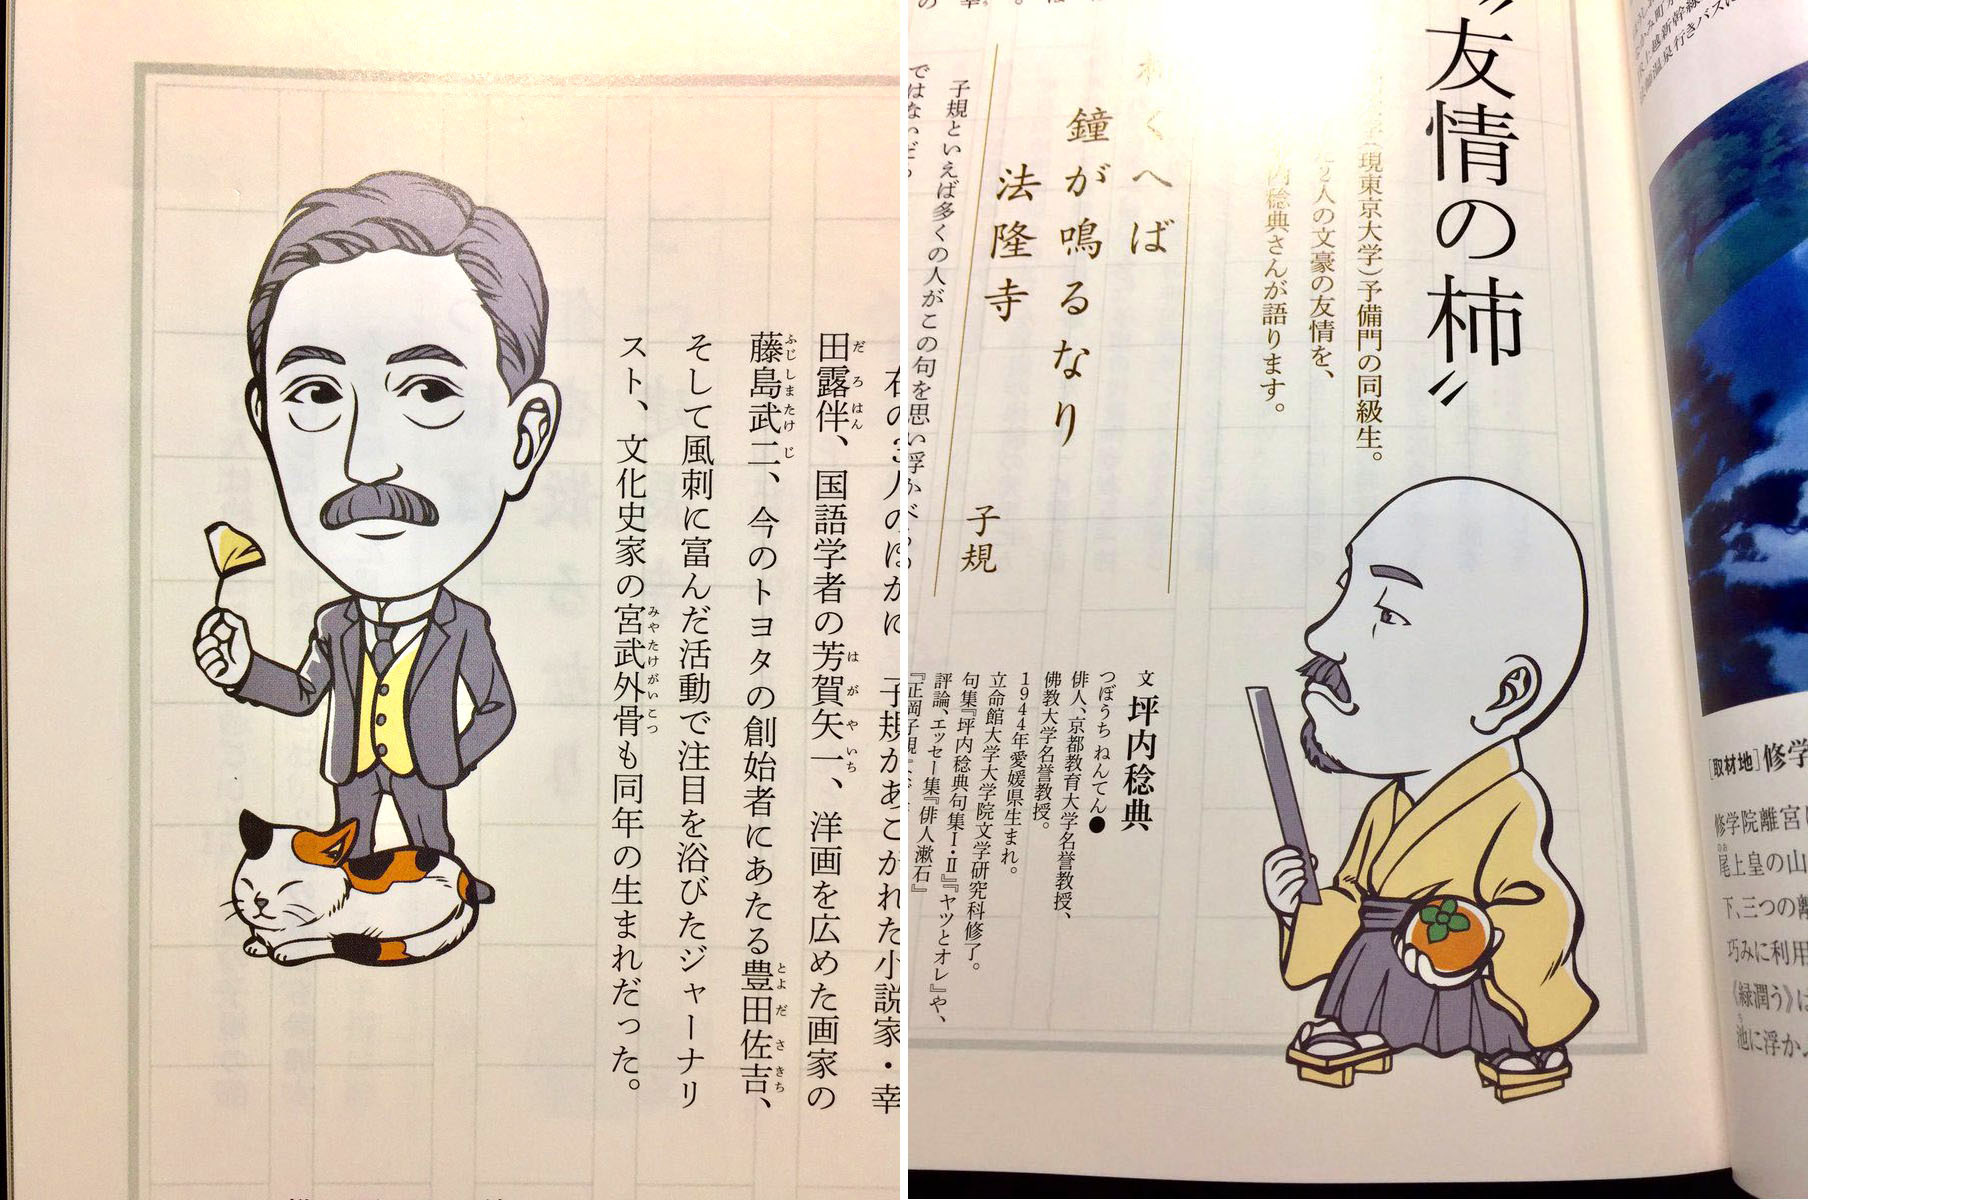 右の3人のほかに、子規があこがれた小説家・幸
だろはん はがやいち
田露伴、国語学者の芳賀矢一、洋画を広めた画家の
ふじしまたけじ とよださきち
藤島武二、今のトヨタの創始者にあたる豊田佐吉、
そして風刺に富んだ活動で注目を浴びたジャーナリ
みやたけがいこつ
スト、文化史家の宮武外骨も同年の生まれだった。
上越新幹線
温泉行きバス
[取材地]修学
修学院離宮
尾上皇の山
下、三つの離
巧みに利用
《緑潤う》は
池に浮か
〝友情の柿〟
(現東京大学)予備門の同級生。
2人の文豪の友情を、
内稔典さんが語ります。
柿くへば
鐘が鳴るなり
法隆寺
子規
子規といえば多くの人がこの句を思い浮かべ
ではないだろ
文 坪内稔典
つぼうち ねんてん●
俳人、京都教育大学名誉教授、
佛教大学名誉教授。
1944年愛媛県生まれ。
立命館大学大学院文学研究科修了。
句集『坪内稔典句集Ⅰ・Ⅱ』『ヤツとオレ』や、
評論、エッセー集『俳人漱石』
『正岡子規